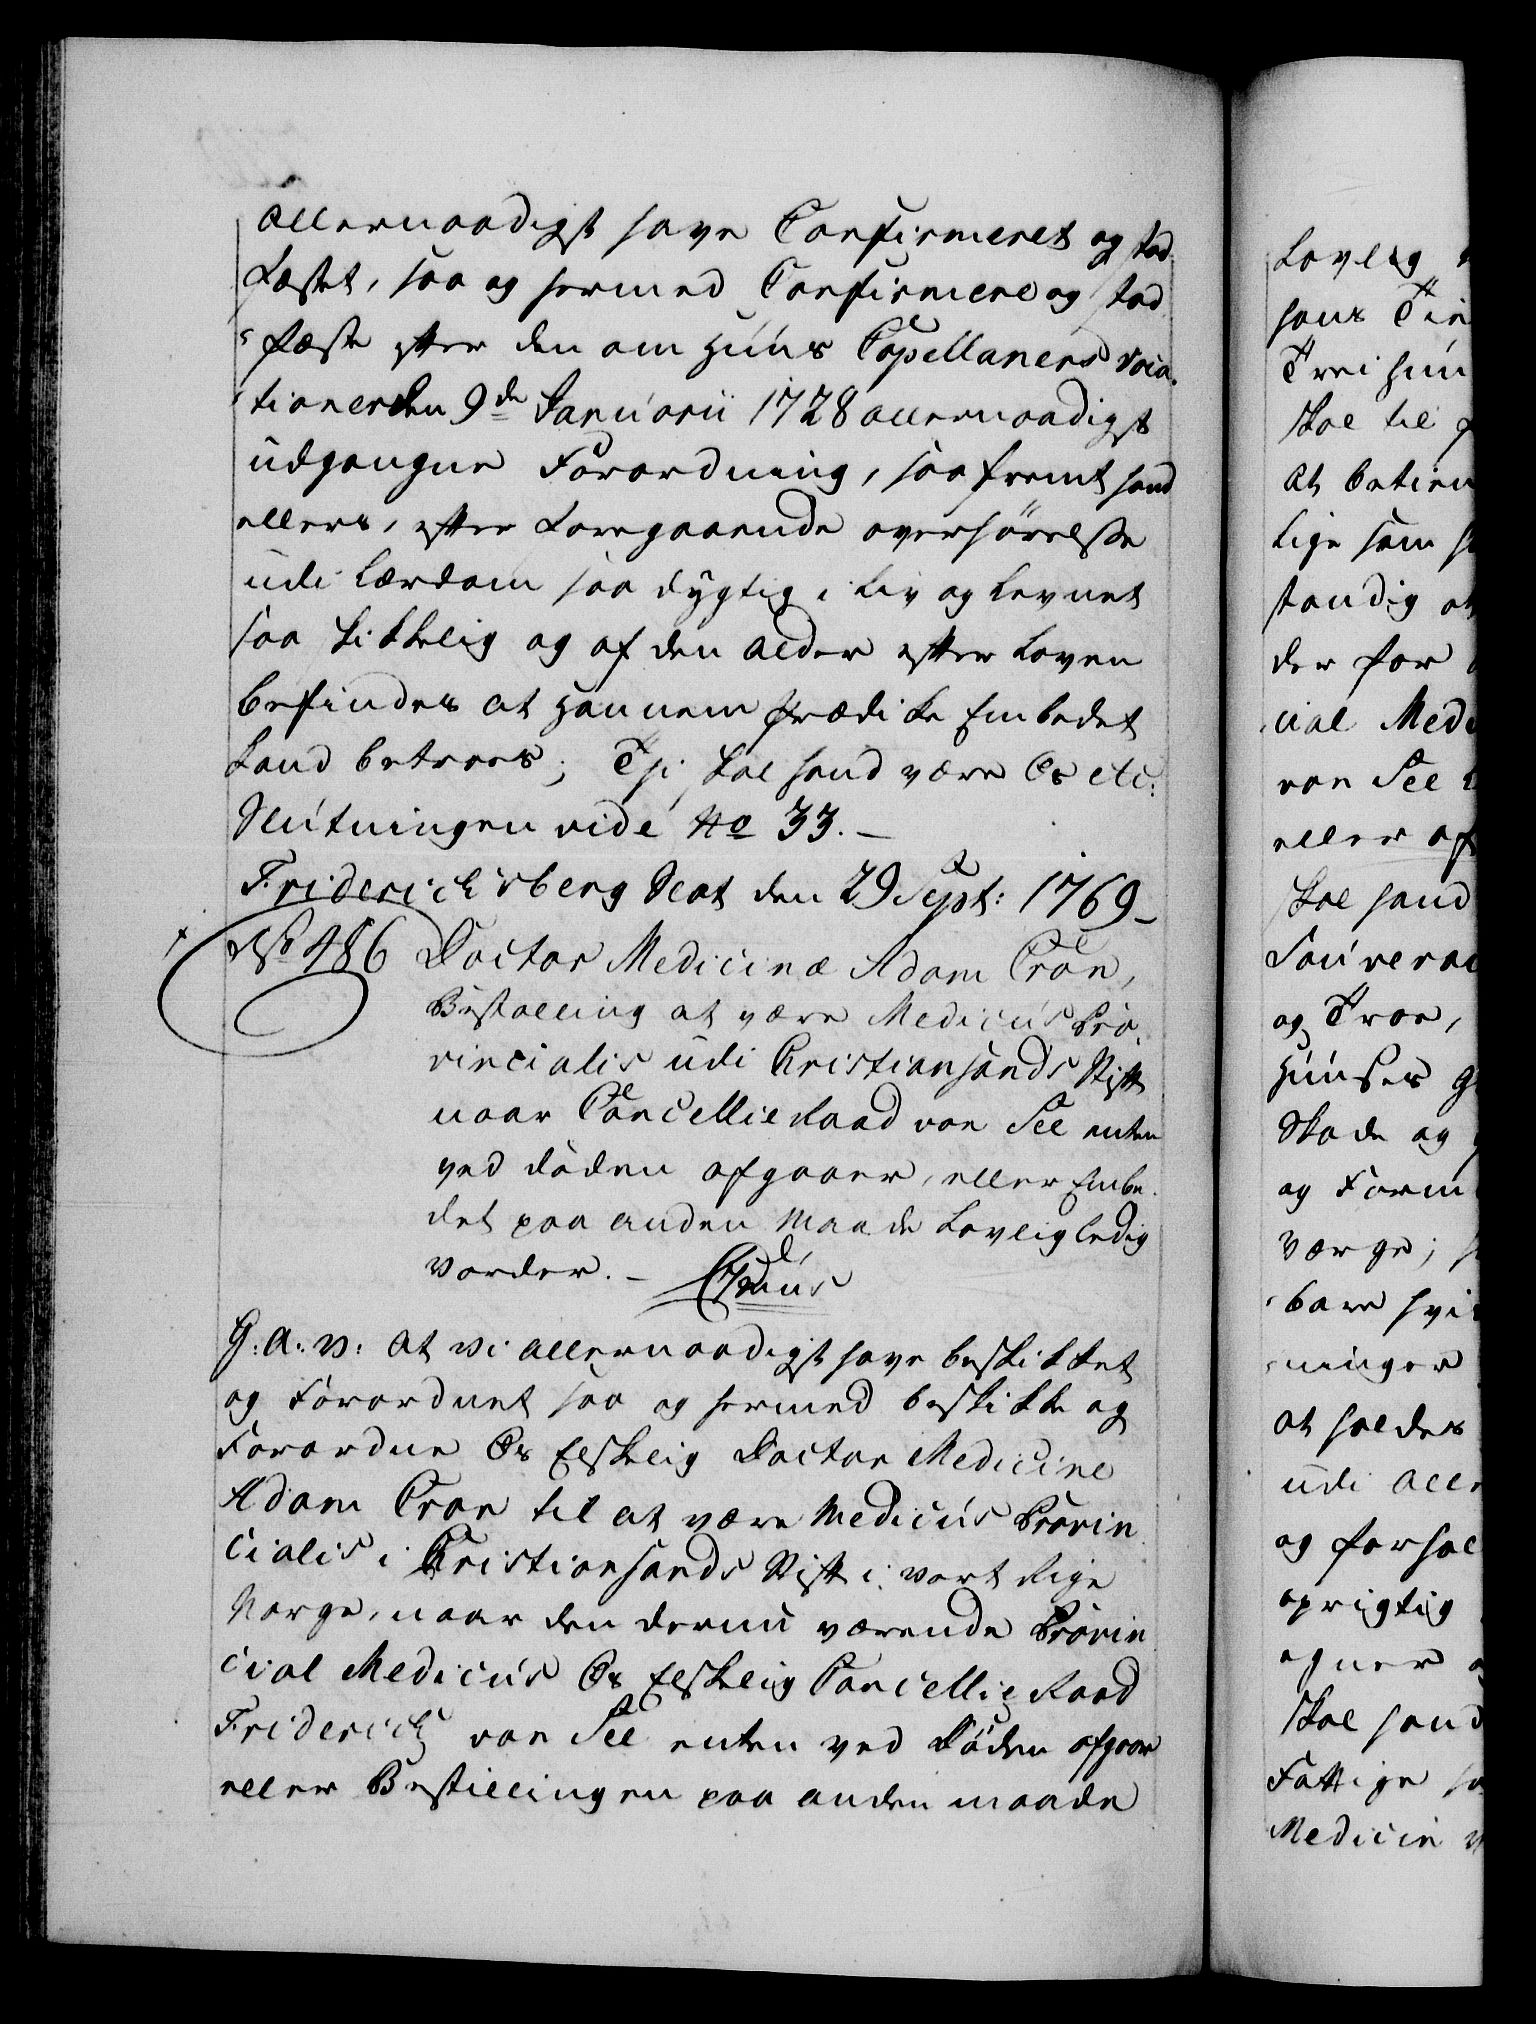 Allernaadigst have Confirmeret og stad
fæstet, saa og hermed Confirmere og stad
fæste efter den om Huus Capellaners Voca
tioner den 9de Januarii 1728 allernaadigst
udgangne Forordning, saa fremt hand
ellers, efter foregaaende overhörelse
udi Lærdom saa dygtig, i Liv og Levnet
saa skikkelig og af den Alder efter Loven
befindes at hannem Prædike Embedet
kand betroes; Thi skal hand være Os etc:
Slutningen vide No 33. —
Friderichsberg Slot den 29 Sept: 1769 —
No 486 Doctor Medicinæ Adam Cron,
Bestalling at være Medicus Pro
vincialis udi Christiansands Stift
naar Cancellie Raad von See enten
ved döden afgaaer, eller Embe
det paa anden Maade Lovlig ledig
vorder. —
G: A: V: At Vi allernaadigst have beskikket
og Forordnet saa og hermed beskikke og
Forordne Os Elskelig Doctor Medicine
Adam Cron til at være Medicus Provin
cialis i Christiansands Stift i vort Rige
Norge, naar den dernu værende Provin
cial Medicus Os Elskelig Cancellie Raad
Friderich von See enten ved Döden afgaar
eller Bestillingen paa anden maade
Lovlig
hans
skal til
At betien
Lige som
standig at
der for
cial Med
von See
eller af
skal hand
og Troe,
Huuses
Skade og
og Form
Værge;
bare hvi
ninger
at holdes
udi All
og forhol
oprigtig
egner
skal hand
Fattige
Medicin